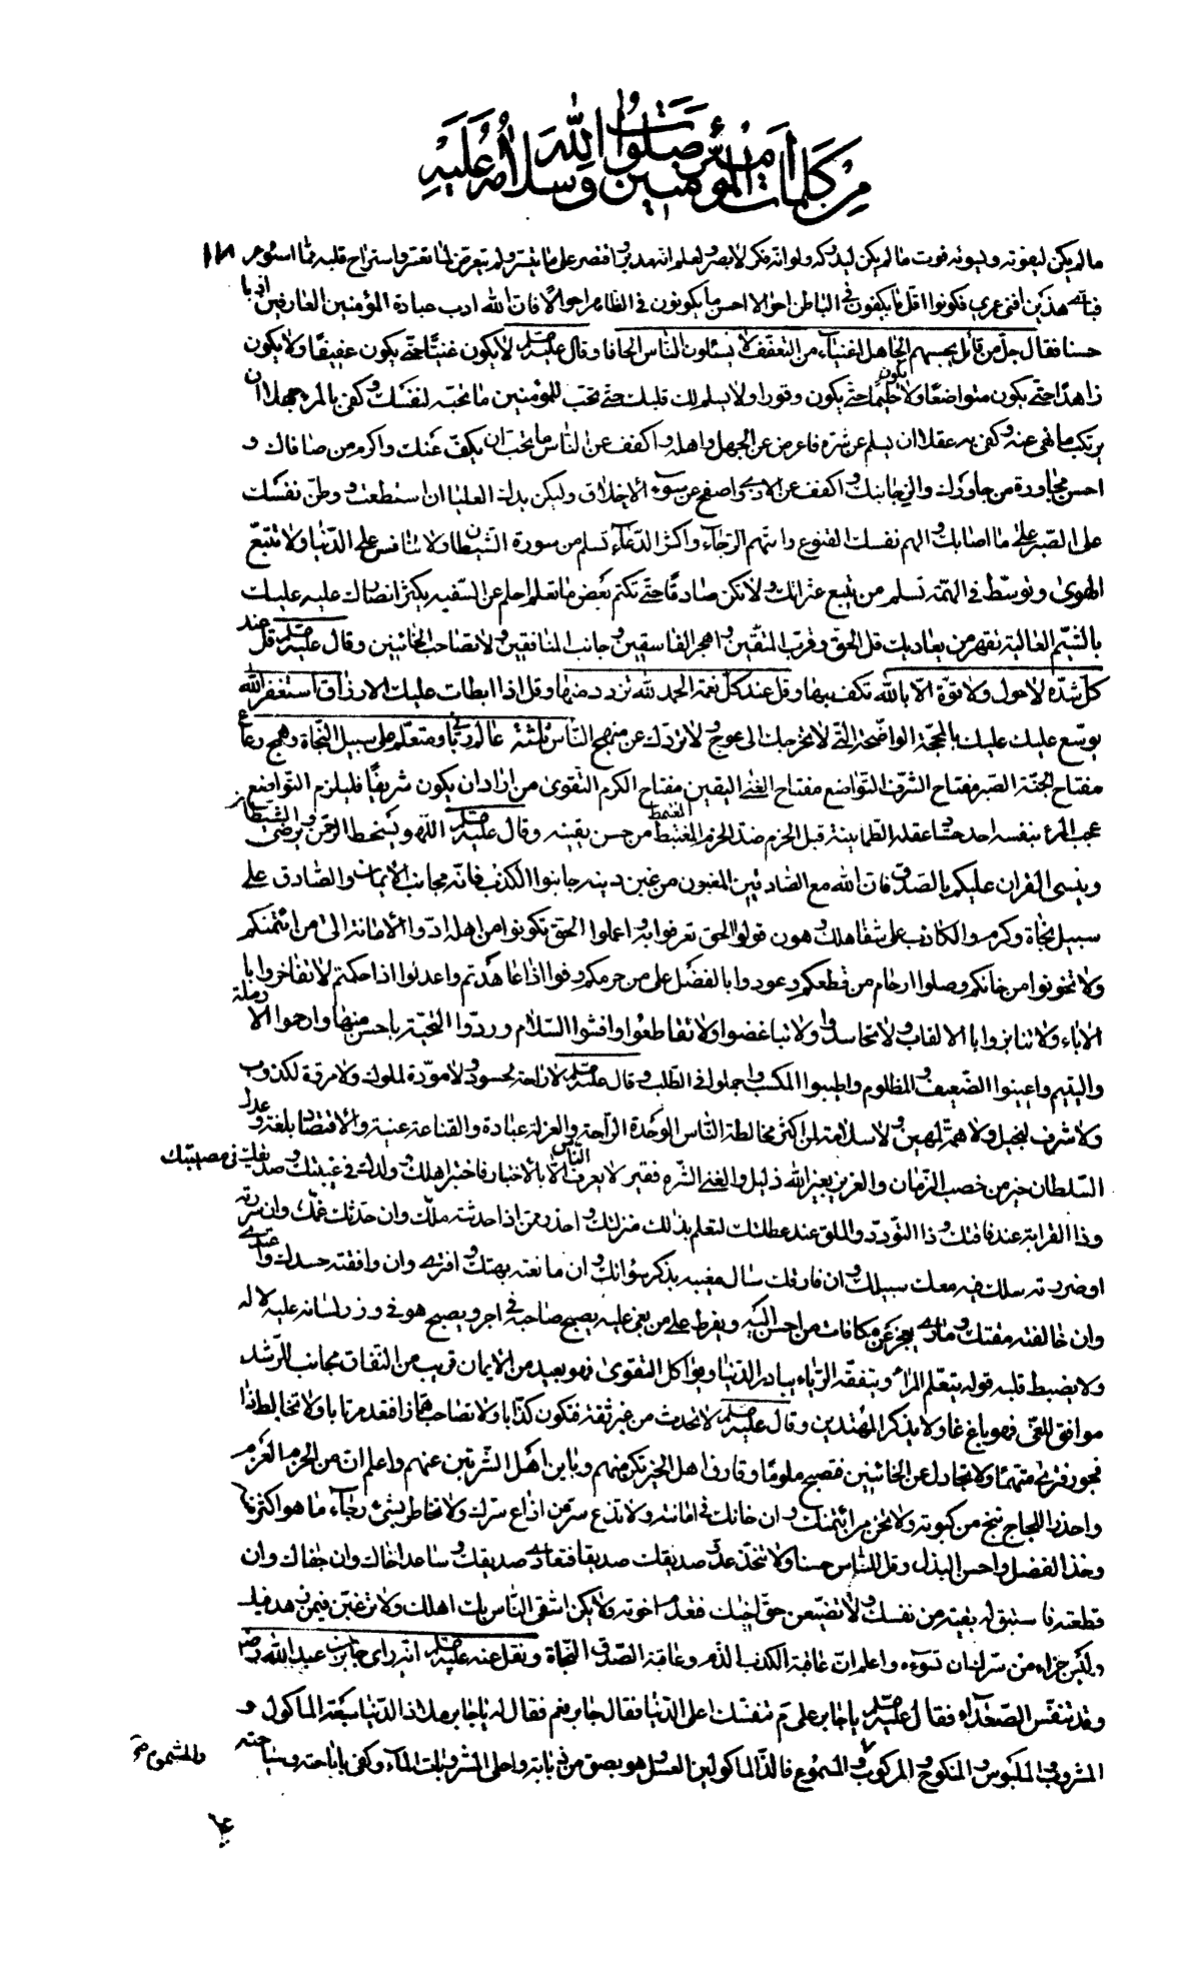 من كلمات أمير المؤمنين صلوات الله وسلامه عليه
ما لم يكن ليفوته وليوئه فوت ما لم يكن ليدركه ولو انه فكر لابصر ولعلم انه مدبر واقتصر على ما تيسر ولم يتعرض لما تعسر واستراح قلبه مما استوعر
فبأى هذين افنى عمرى فكونوا اقل ما يكونون فى الباطن احوالا احسن ما يكونون فى الظاهر احوالا فان الله ادب عباده المؤمنين العارفين ادبا
حسنا فقال جل من قائل يحسبهم الجاهل اغنياء من التعفف لا يسئلون الناس الحافا وقال عليه لا يكون غنيا حتى يكون عفيفا ولا يكون
زاهدا حتى يكون متواضعا ولا يكون حليما حتى يكون وقورا ولا يسلم لك قلبك حتى تحب للمؤمنين ما تحبه لنفسك وكفى بالمرء جهلا ان
يرتكب ما نهى عنه وكفى به عقلا ان يسلم عن شره فاعرض عن الجهل واهله واكفف عن الناس ما تحب ان يكف عنك واكرم من صافاك و
احسن مجاورة من جاورك والن جانبك واكفف عن الاذى واصفح عن سوء الاخلاق وليكن يدك العليا ان استطعت ووطن نفسك
على الصبر على ما اصابك والهم نفسك القنوع واتهم الرجاء واكثر الدعاء تسلم من سورة الشيطان ولا تنافس على الدنيا ولا تتبع
الهوى وتوسط فى الهمة تسلم من يتبع عثراتك ولا تكن صادقا حتى تكتم بعض ما تعلم احلم عن السفيه يكثر انصارك عليه عليك
بالشيم العالية تقهر من يعاديك قل الحق وقرب المتقين واهجر الفاسقين وجانب المنافقين ولا تصاحب الخائنين وقال عليه قل عند
كل شدة لا حول ولا قوة الا بالله تكف بها وقل عند كل نعمة الحمد لله تزدد منها وقل اذا ابطات عليك الارزاق استغفر الله
يوسع عليك عليك بالمحجة الواضحة التى لا تخرجك الى عوج ولا تردك عن منهج الناس ثلثة عالم ربانى ومتعلم على سبيل النجاة وهمج رعاع
مفتاح الجنة الصبر مفتاح الشرف التواضع مفتاح الغنى اليقين مفتاح الكرم التقوى من اراد ان يكون شريفا فليلزم التواضع
عجب المرء بنفسه احد حساد عقله الطمانينة قبل الحزم ضد الحزم المغتبط من حسن يقينه وقال عليه اللهو يسخط الرحمن ويرضى الشيطان
وينسى القران عليكم بالصدق فان الله مع الصادقين المغبون من غبن دينه جانبوا الكذب فانه مجانب الايمان والصادق على
سبيل نجاة وكرم والكاذب على شفا هلك وهون قولوا الحق تعرفوا به واعملوا الحق تكونوا من اهله ادوا الامانة الى من ائتمنكم
ولا تخونوا من خانكم وصلوا ارحام من قطعكم وعودوا بالفضل على من حرمكم وفوا اذا عاهدتم واعدلوا اذا حكمتم لا تفاخروا با
لاباء ولا تنابزوا بالالقاب ولا تحاسدوا ولا تباغضوا ولا تقاطعوا وافشوا السلام وردوا التحية باحسن منها وارحموا الارملة
واليتيم واعينوا الضعيف والمظلوم واطيبوا المكسب واجملوا فى الطلب وقال عليه لا راحة لحسود ولا مودة لملوك ولا مروة لكذوب
ولا شرف لبخيل ولا همة لمهين ولا سلامة لمن اكثر مخالطة الناس الوحدة الراحة والعزلة عبادة والقناعة غنية والاقتصاد بلغة وعدل
السلطان خير من خصب الزمان والعزيز بغير الله ذليل والغنى الشره فقير لا يعرف الناس الا بالاختبار فاختبر اهلك وولدك فى غيبتك وصديقك فى مصيبتك
وذا القرابة عند فاقتك وذا التودد والملق عند عطلتك لتعلم بذلك منزلتك واحذر ممن اذا حدثته ملك وان حدثك غمك وان سررته
او ضررته سلك فيه معك سبيلك وان فارقك ساك مغيبه بذكر سوأتك وان مانعته بهتك وافترى وان وافقته حسدك واعتدى
وان خالفته مقتك ومارى يعجز عن مكافات من احسن اليه ويفرط على من بغى عليه يصبح صاحبه فى اجر ويصبح هو فى وزر لسانه عليه لا له
ولا يضبط قلبه قوله يتعلم المراء ويتفقه الرياء يبادر الدنيا ويواكل التقوى فهو بعيد من الايمان قريب من النفاق مجانب للرشد
موافق للغى فهو باغ غاو لا يذكر المهتدين وقال عليه لا تحدث من غير ثقة فتكون كذابا ولا تصاحب همازا فتعد مرتابا ولا تخالط ذا
فجور فترى متهما ولا تجادل عن الخائنين فتصبح ملوما وقارن اهل الخير تكن منهم وباين اهل الشر تبن عنهم واعلم ان من الحزم العزم
واحذر اللجاج تنج من كبوته ولا تخن من ائتمنك وان خانك فى امانته ولا تذع سر من اذاع سرك ولا تخاطر بشىء رجاء ما هو اكثر منه
وخذ الفضل واحسن البذل وقل للناس حسنا ولا تتخذ عدو صديقك صديقا فتعادى صديقك وساعد اخاك وان جفاك وان
قطعته فاستبق له بقية من نفسك ولا تضيعن حق اخيك فتعدم اخوته ولا يكن اشقى الناس بك اهلك ولا ترغبن فيمن زهد فيك
وليس جزاء من سرك ان تسوءه واعلم ان عاقبة الكذب الذم وعاقبة الصدق النجاة ونقل عنه عليه انه راى جابر بن عبد الله رضه
وقد تنفس الصعداء فقال عليه يا جابر على م تنفسك اعلى الدنيا فقال جابر نعم فقال له يا جابر ملاذ الدنيا سبعة الماكول و
المشروب والملبوس والمنكوح والمركوب والمشموم والمسموع فالذ الماكولين العسل وهو بصق من ذبابة واحلى المشروبات الماء وكفى باباحته وسباحته